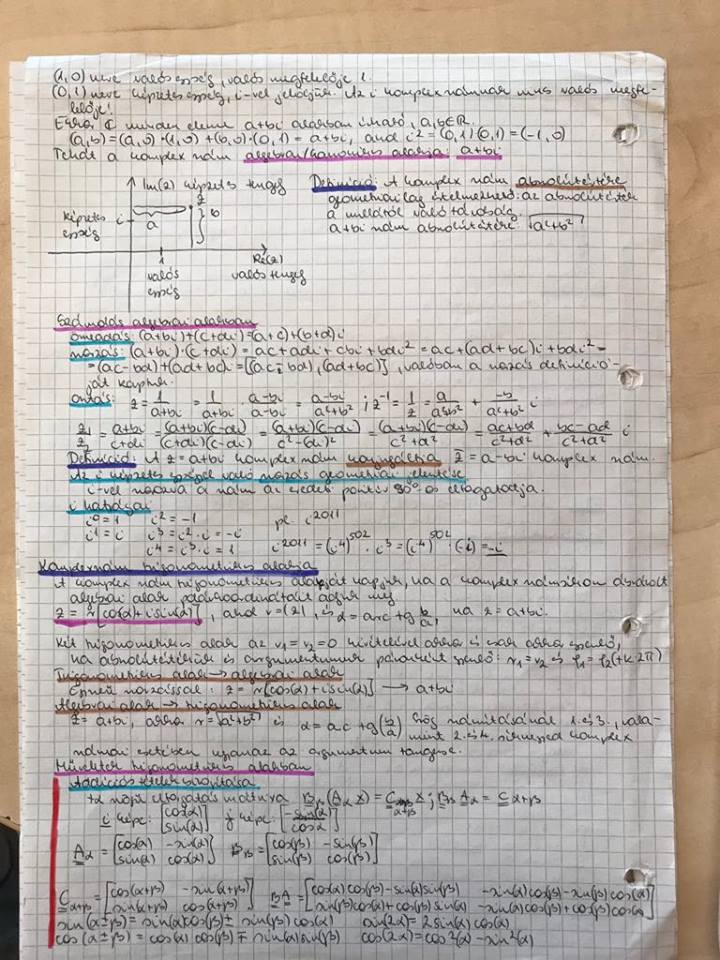 (1,0) neve valós egység, valós megfelelője 1.
(0,1) neve képzetes egység, i-vel jelöljük. Az i komplex számnak nincs valós megfe-
lelője!
Ekkor ℂ minden eleme a+bi alakban írható, a,b∈ℝ.
(a,b)=(a,0)·(1,0)+(b,0)·(0,1)=a+bi, ahol i²=(0,1)(0,1)=(-1,0)
Tehát a komplex szám algebrai/kanonikus alakja: a+bi
Im(z) képzetes tengely
képzetes egység i
a
z
b
1
valós egység
Re(z)
valós tengely
Definíció: A komplex szám abszolútértéke
geometriailag értelmezhető: az abszolútérték
a nullától való távolság.
a+bi szám abszolútértéke: √a²+b²
Számolás algebrai alakban
összeadás: (a+bi)+(c+di)=(a+c)+(b+d)i
szorzás: (a+bi)·(c+di)=ac+adi+cbi+bdi²=ac+(ad+bc)i+bdi²=
=(ac-bd)+(ad+bc)i=[(ac-bd),(ad+bc)], valóban a szorzás definíció-
ját kaptuk.
Osztás: z=1/(a+bi)=1/(a+bi)·(a-bi)/(a-bi)=(a-bi)/(a²+b²); z⁻¹=1/z=a/(a²+b²)+(-b)/(a²+b²) i
z₁/z₂=(a+bi)/(c+di)=(a+bi)(c-di)/(c+di)(c-di)=(a+bi)(c-di)/(c²-(di)²)=(a+bi)(c-di)/(c²+d²)=(ac+bd)/(c²+d²)+(bc-ad)/(c²+d²) i
Definíció: A z=a+bi komplex szám konjugáltja z̄=a-bi komplex szám.
Az i képzetes egységgel való szorzás geometriai jelentése
i-vel szorozva a szám az eredeti pont 90°-os elforgatottja.
i hatványai
i⁰=1 i²=-1 pl. i²⁰¹¹
i¹=i i³=i²·i=-i
i⁴=i³·i=1 i²⁰¹¹=(i⁴)⁵⁰²·i³=(i⁴)⁵⁰²·(-i)=-i
Komplex szám trigonometrikus alakja
A komplex szám trigonometrikus alakját kapjuk, ha a komplex számsíkon ábrázolt
algebrai alak polárkoordinátáit adjuk meg
z=r[cos(α)+i sin(α)], ahol r=|z|, és α=arc tg b/a, ha z=a+bi.
Két trigonometrikus alak az r₁=r₂=0 kivételével akkor és csak akkor egyenlő,
ha abszolútértékük és argumentumuk páronként egyenlő: r₁=r₂ és φ₁=φ₂(+k·2π)
Trigonometrikus alak→algebrai alak
Egyszerű szorzással: z=r[cos(α)+i sin(α)]→a+bi
Algebrai alak→trigonometrikus alak
z=a+bi, akkor r=√a²+b² és α=arc tg(b/a) szög számításánál 1. és 3., vala-
mint 2. és 4. síknegyed komplex
számai esetében ugyanaz az argumentum tangense.
Műveletek trigonometrikus alakban
Addíciós tételek bizonyítása
+α szögű elforgatás mátrixa B_β(A_α x)=C_α+β x; B_β A_α=C_α+β
i képe: [cos(α) sin(α)] j képe: [-sin(α) cosα]
A_α=[cos(α) -sin(α)] B_β=[cos(β) -sin(β)]
[sin(α) cos(α)] [sin(β) cos(β)]
C_α+β=[cos(α+β) -sin(α+β)] BA=[cos(α)cos(β)-sin(α)sin(β) -sin(α)cos(β)-sin(β)cos(α)]
[sin(α+β) cos(α+β)] [sin(β)cos(α)+cos(β)sin(α) -sin(α)sin(β)+cos(β)cos(α)]
sin(α±β)=sin(α)cos(β)±sin(β)cos(α) sin(2α)=2sin(α)cos(α)
cos(α±β)=cos(α)cos(β)∓sin(α)sin(β) cos(2α)=cos²(α)-sin²(α)